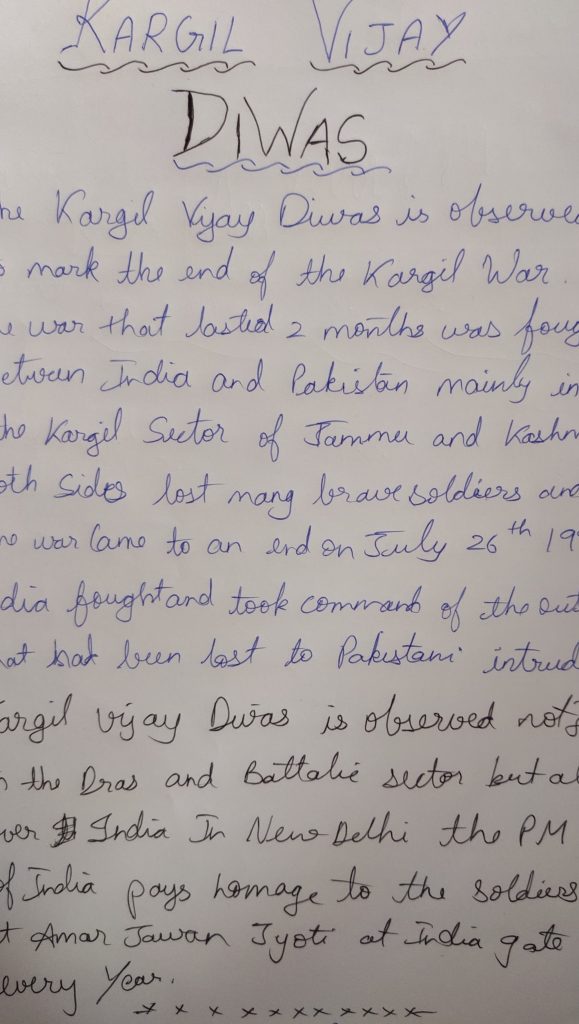 KARGIL VIJAY
DIWAS
he Kargil Vijay Diwas is observe
mark the end of the Kargil War.
e war that lasted 2 months was foug
etween India and Pakistan mainly in
he Kargil Sector of Jammu and Kashm
oth Sides lost many brave soldiers and
he war Came to an end on July 26th 19
dia fought and took command of the out
at had been lost to Pakistani intrud
argil vijay Diwas is observed not
n the Dras and Battalie sector but al
ver India In New Delhi the PM
of India pays homage to the soldiers
t Amar Jawan Jyoti at India gate
every Year.